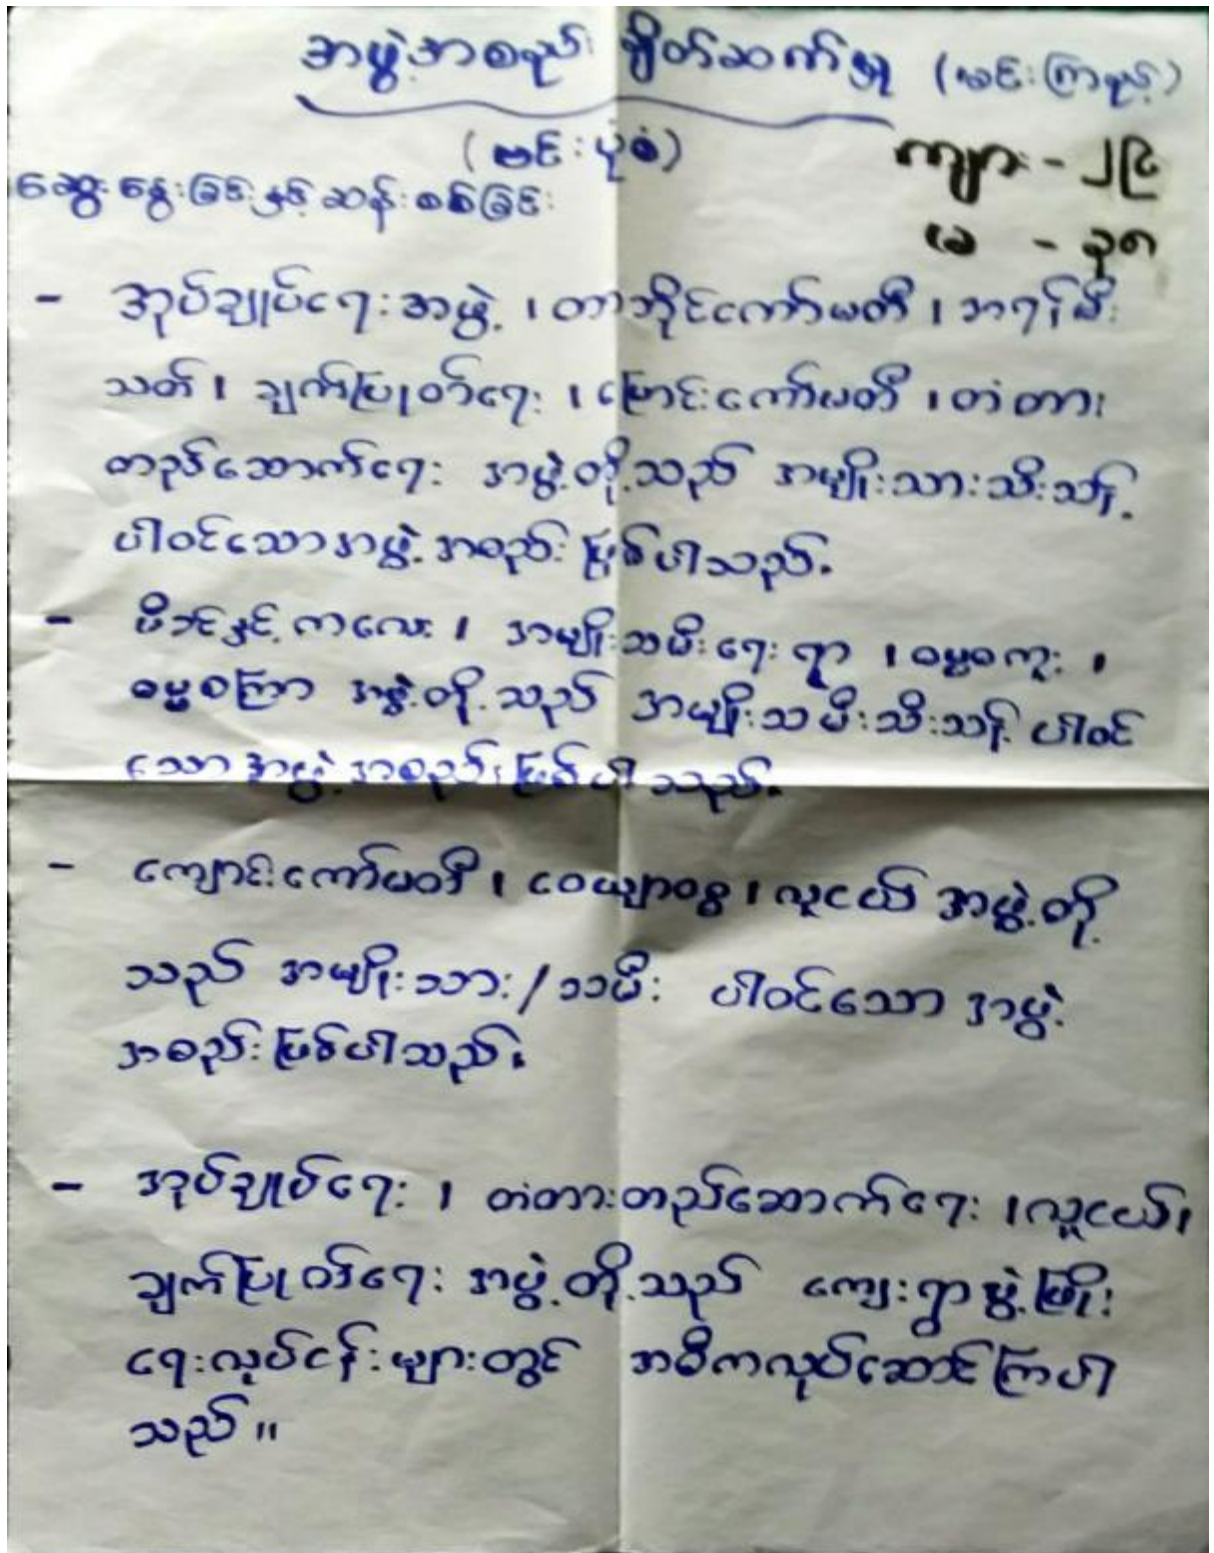 အဖွဲ့အစည်း ချိတ်ဆက်မှု (မင်းကြာရည်)
(ဗင်းပုံစံ)
ကျား - ၂၆
မ - ၃၈
ဆွေးနွေးခြင်းနှင့်ဆန်းစစ်ခြင်း
- အုပ်ချုပ်ရေးအဖွဲ့၊ တာတိုင်ကော်မတီ၊ အရန်မီး
သတ်၊ ချက်ပြုတ်ရေး၊ မြောင်းကော်မတီ၊ တံတား
တည်ဆောက်ရေး အဖွဲ့တို့သည် အမျိုးသားသီးသန့်
ပါဝင်သောအဖွဲ့အစည်းဖြစ်ပါသည်။
- မိခင်နှင့်ကလေး၊ အမျိုးသမီးရေးရာ၊ ဓမ္မစကူး၊
ဓမ္မစကြာ အဖွဲ့တို့သည် အမျိုးသမီးသီးသန့် ပါဝင်
သောအဖွဲ့အစည်းဖြစ်ပါသည်။
- ကျောင်းကော်မတီ၊ ဝေယျာဝစ္စ၊ လူငယ်အဖွဲ့တို့
သည် အမျိုးသား/သမီး ပါဝင်သော အဖွဲ့
အစည်းဖြစ်ပါသည်။
- အုပ်ချုပ်ရေး၊ တံတားတည်ဆောက်ရေး၊ လူငယ်၊
ချက်ပြုတ်ရေးအဖွဲ့တို့သည် ကျေးရွာဖွံ့ဖြိုး
ရေးလုပ်ငန်းများတွင် အဓိကလုပ်ဆောင်ကြပါ
သည်။